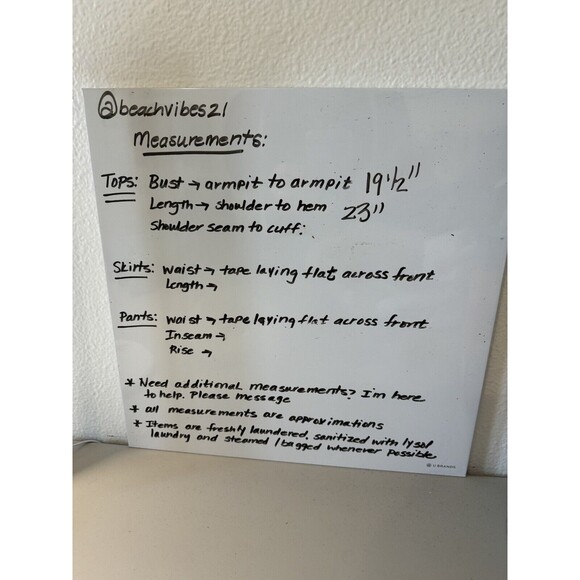 @beachvibes21
Measurements:
Tops: Bust → armpit to armpit 19 1/2"
Length → shoulder to hem 23"
Shoulder seam to cuff:
Skirts: Waist → tape laying flat across front
Length →
Pants: Waist → tape laying flat across front
Inseam →
Rise →
* Need additional measurements? I'm here
to help. Please message
* all measurements are approximations
* Items are freshly laundered, sanitized with lysol
laundry and steamed / bagged whenever possible
© U BRANDS